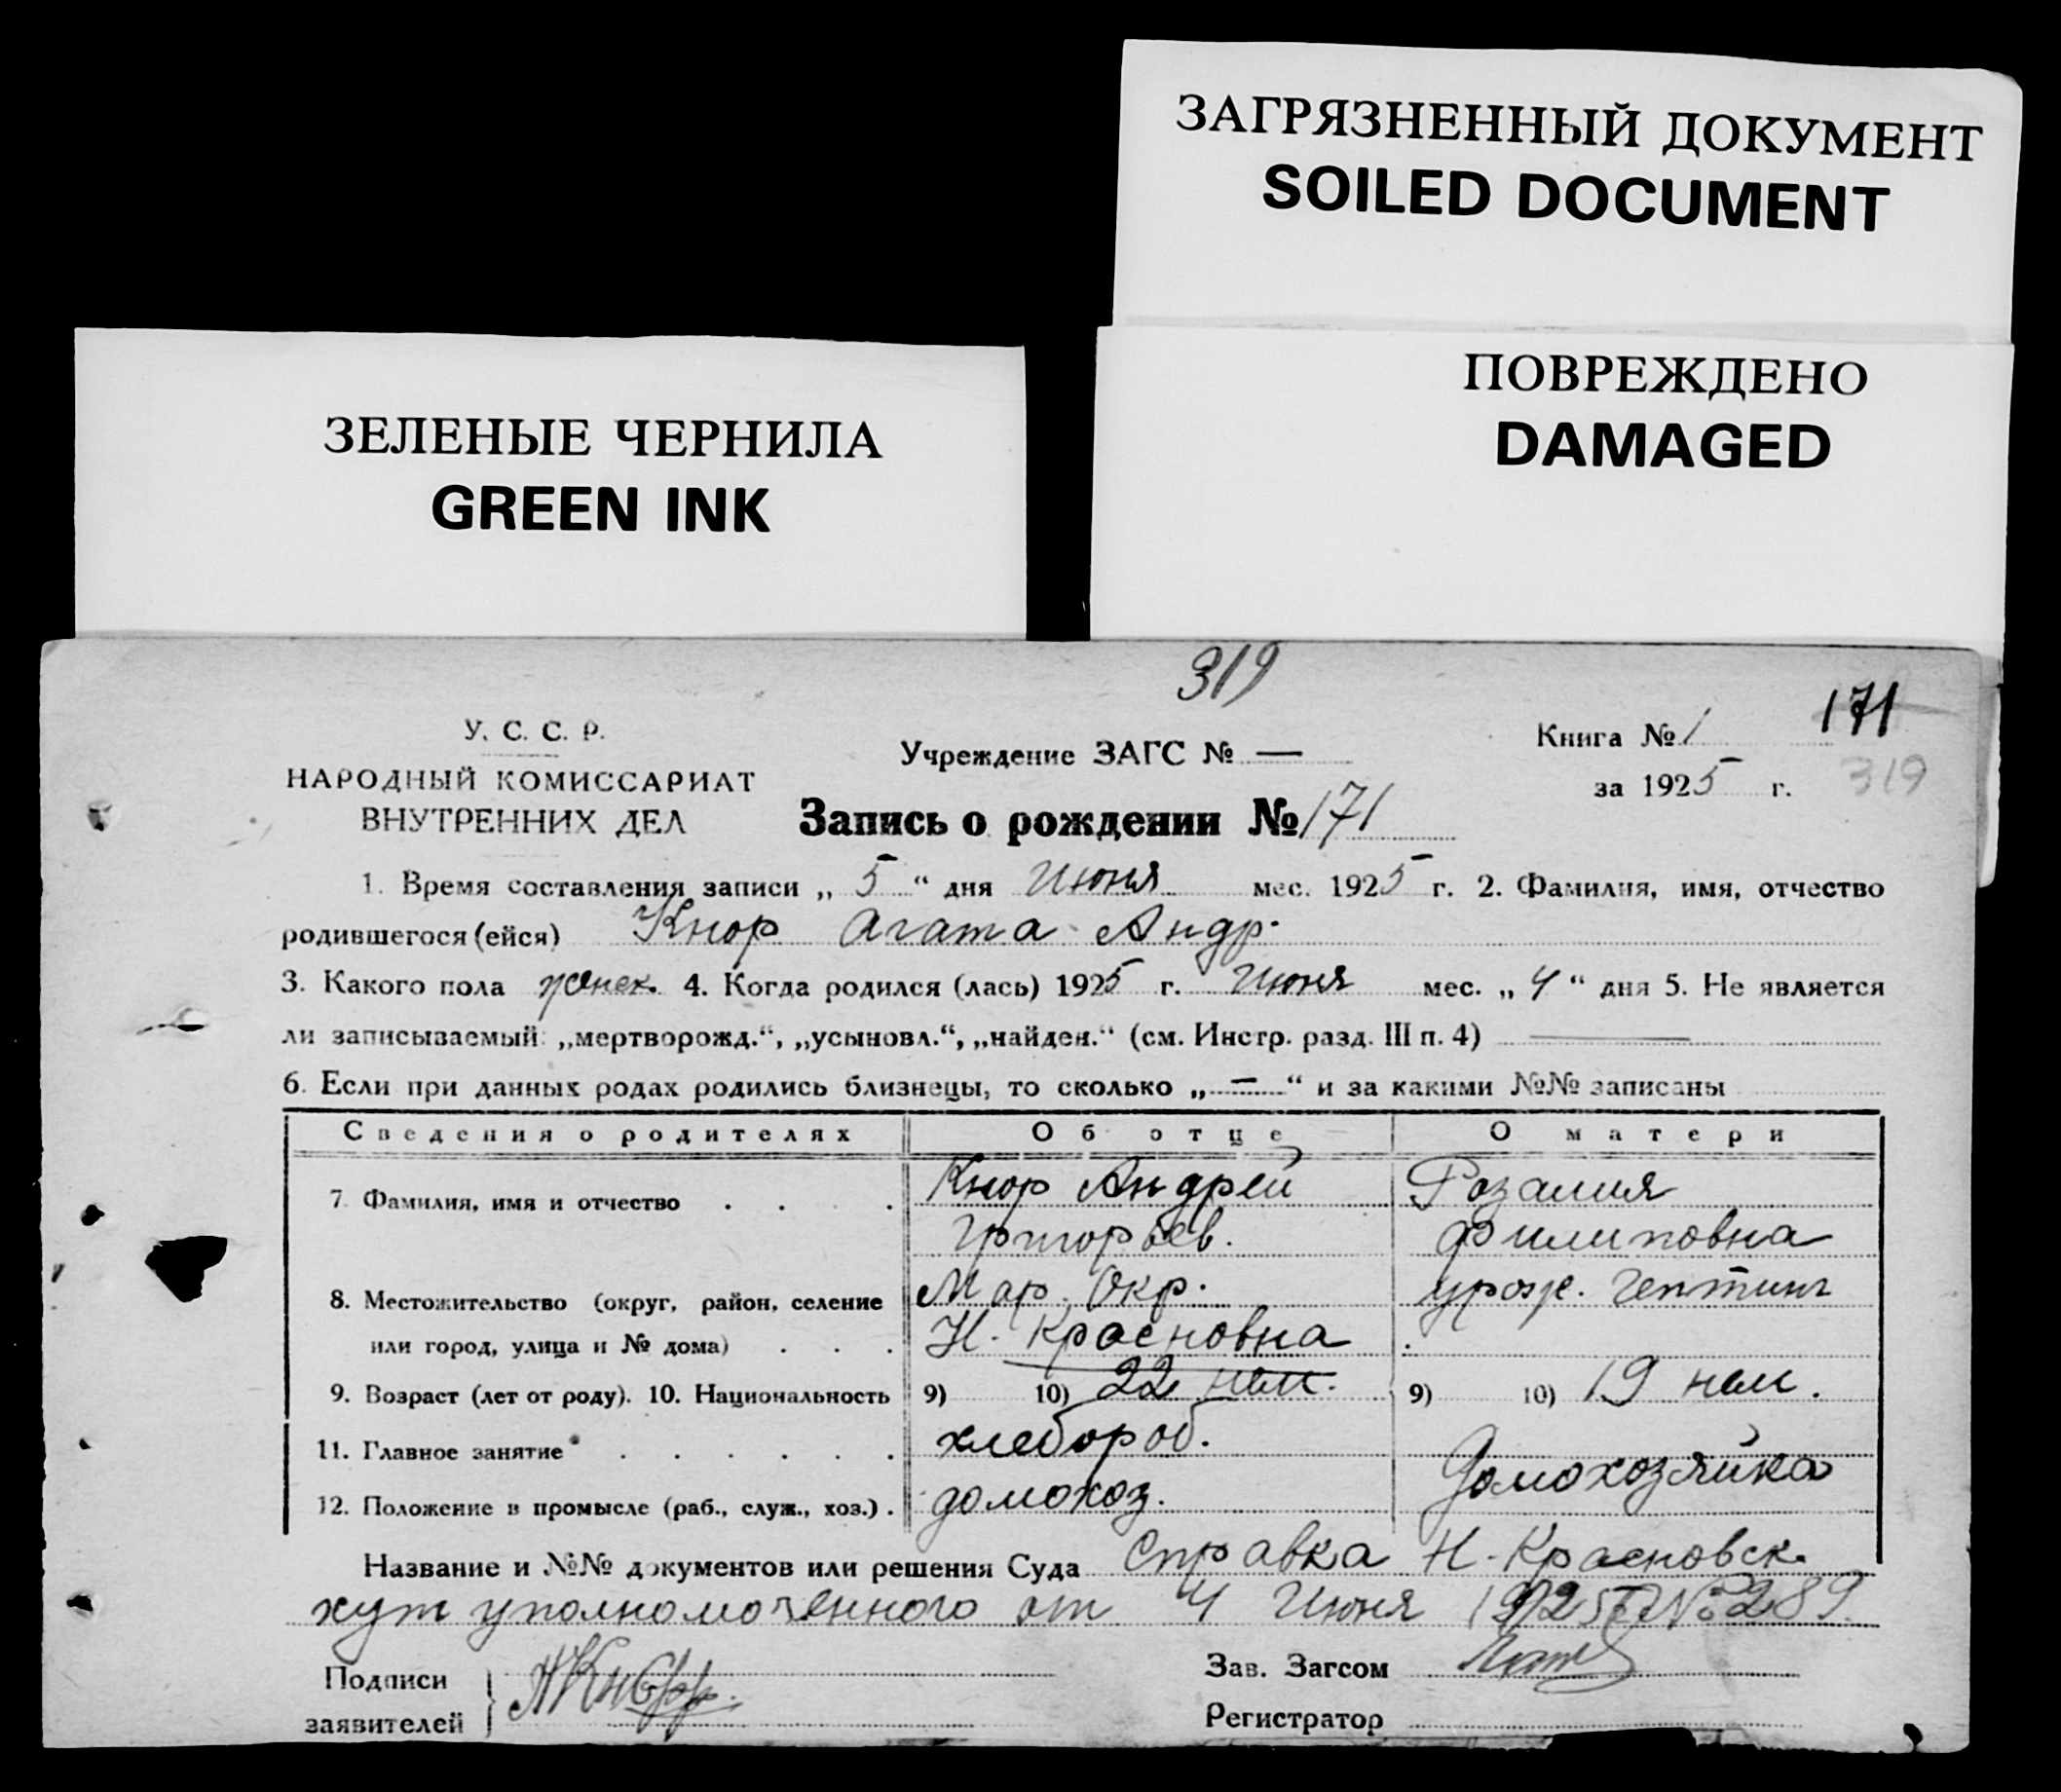 ЗАГРЯЗНЕННЫЙ ДОКУМЕНТ
SOILED DOCUMENT
ПОВРЕЖДЕНО
DAMAGED
ЗЕЛЕНЫЕ ЧЕРНИЛА
GREEN INK
319
171
У. С. С. Р.
НАРОДНЫЙ КОМИССАРИАТ
ВНУТРЕННИХ ДЕЛ
Учреждение ЗАГС № —
Книга № 1
за 1925 г.
319
Запись о рождении № 171
1. Время составления записи „ 5 “ дня Июня мес. 1925 г. 2. Фамилия, имя, отчество
родившегося (ейся) Кнор Агата Андр.
3. Какого пола женск. 4. Когда родился (лась) 1925 г. Июня мес. „ 4 “ дня 5. Не является
ли записываемый: „мертворожд.“, „усыновл.“, „найден.“ (см. Инстр. разд. III п. 4) —
6. Если при данных родах родились близнецы, то сколько „ — “ и за какими №№ записаны
Сведения о родителях Об отце О матери
7. Фамилия, имя и отчество . . . . Кнор Андрей Розалия
Григорьев. Филиповна
8. Местожительство (округ, район, селение Мар. Окр. урож. Гептинг
или город, улица и № дома) . . . Н. Красновка
9. Возраст (лет от роду). 10. Национальность 9) 10) 22 нем. 9) 10) 19 нем.
11. Главное занятие . . . . . . хлебороб.
12. Положение в промысле (раб., служ., хоз.) . домохоз. Домохозяйка
Название и №№ документов или решения Суда Справка Н-Красновск.
хут уполномоченного от 4 Июня 1925 г № 289
Подписи
заявителей
А Кнорр.
Зав. Загсом
Регистратор